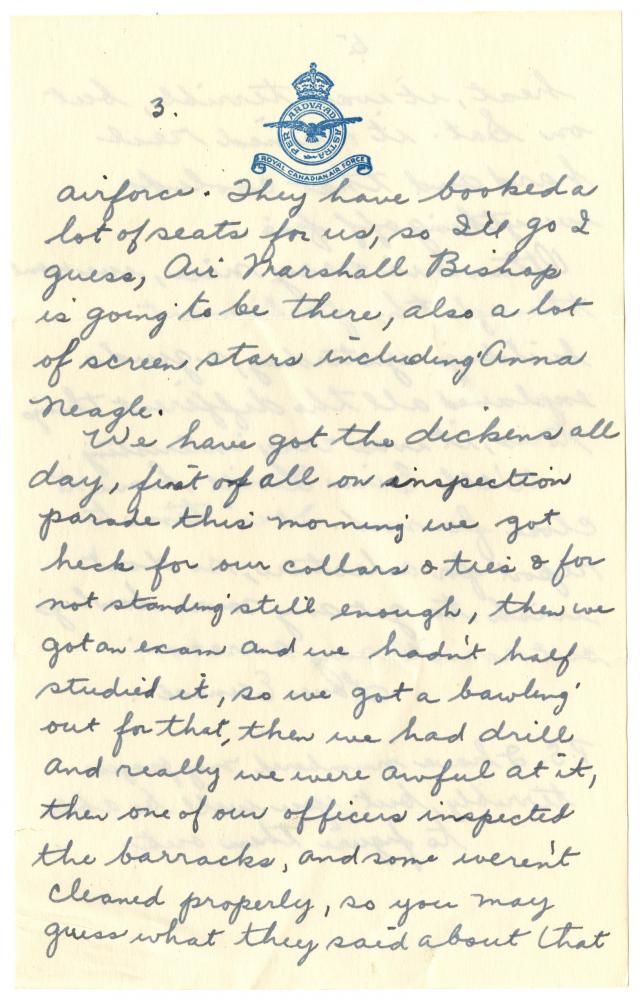 3.
PER ARDVA AD ASTRA
ROYAL CANADIAN AIR FORCE
airforce. They have booked a
lot of seats for us, so I'll go I
guess, Air Marshall Bishop
is going to be there, also a lot
of screen stars including Anna
Neagle.
We have got the dickens all
day, first of all on inspection
parade this morning we got
heck for our collars & ties & for
not standing still enough, then we
got an exam and we hadn't half
studied it, so we got a bawling
out for that, then we had drill
and really we were awful at it,
then one of our officers inspected
the barracks, and some weren't
cleaned properly, so you may
guess what they said about that